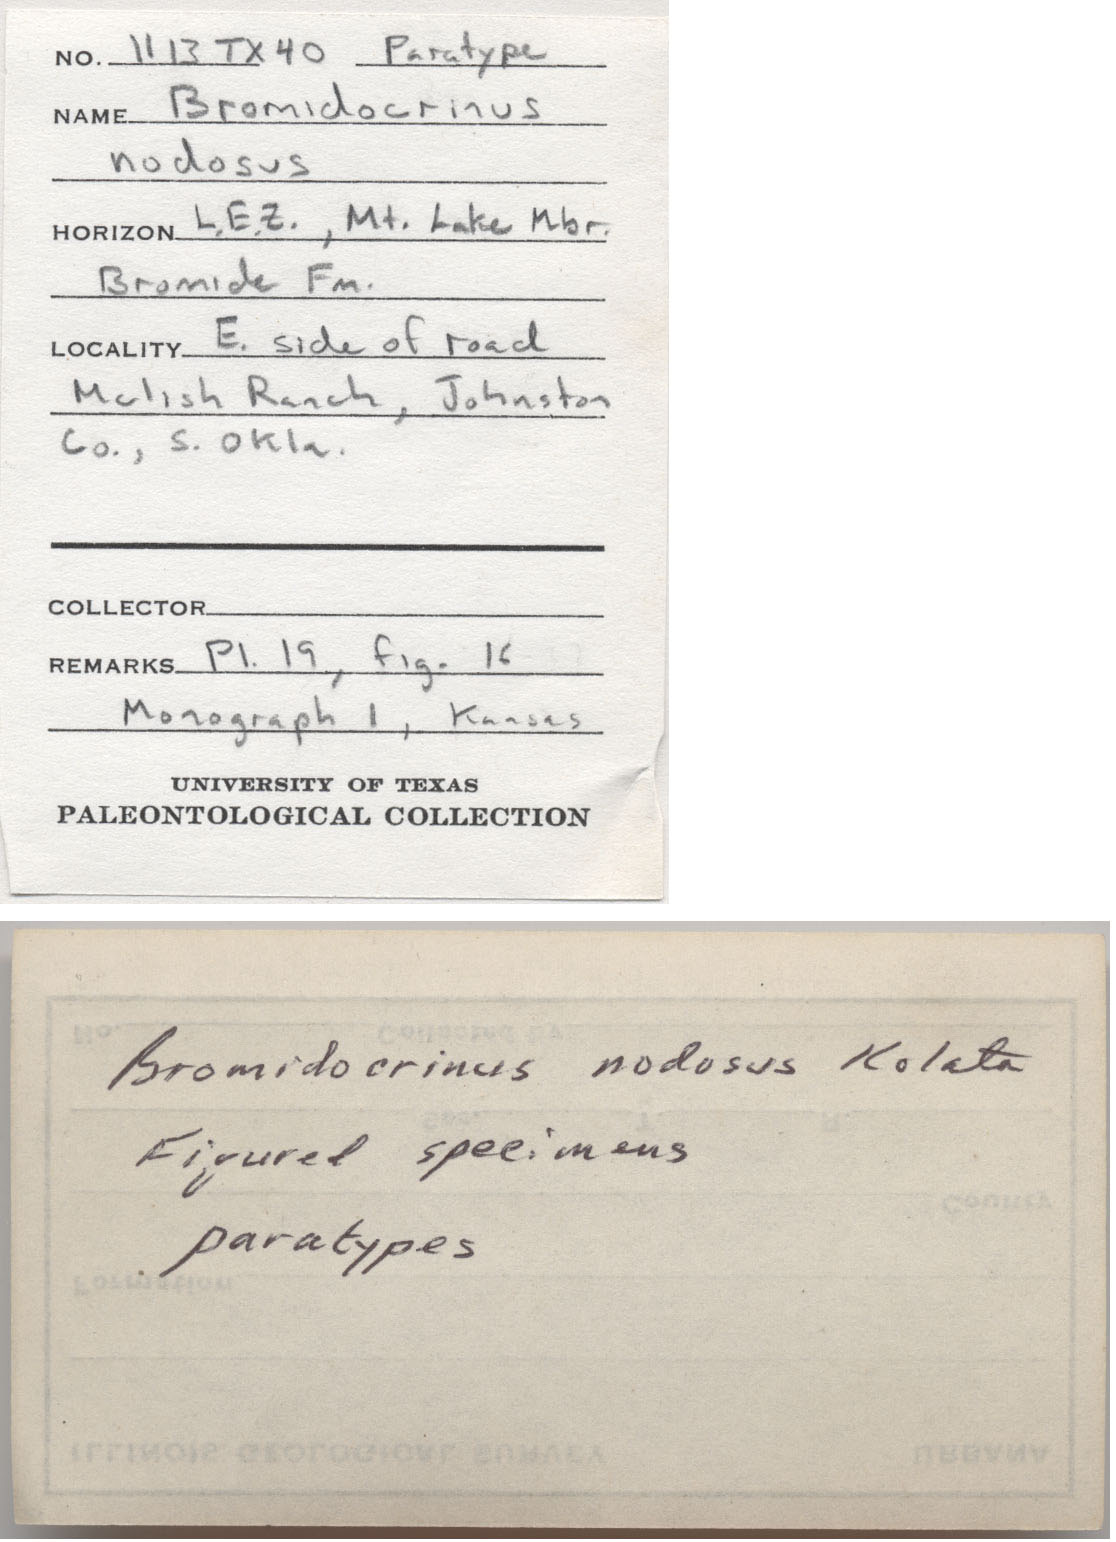 NO. 1113TX40 Paratype
NAME Bromidocrinus
nodosus
HORIZON L.E.Z., Mt. Lake Mbr.
Bromide Fm.
LOCALITY E. side of road
Mclish Ranch, Johnston
Co., S. Okla.
COLLECTOR
REMARKS Pl. 19, fig. 16
Monograph 1, Kansas
UNIVERSITY OF TEXAS
PALEONTOLOGICAL COLLECTION
No. Collected by
Bromidocrinus nodosus Kolata
Sec. T. R.
Figured specimens
County
paratypes
Formation
ILLINOIS GEOLOGICAL SURVEY URBANA